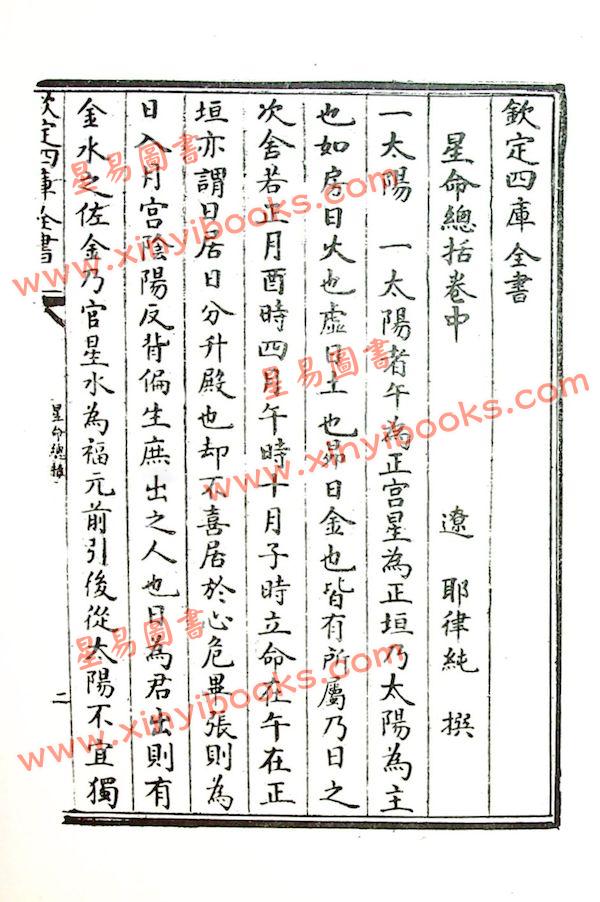 欽定四庫全書
星命總括卷中
遼 耶律純 撰
一太陽 一太陽者午為正宫星為正垣乃太陽為主
也如房日火也虛日土也昴日金也皆有所屬乃日之
次舍若正月酉時四月午時十月子時立命在午在正
垣亦謂日居日分升殿也却不喜居於心危畢張則為
日入月宫陰陽反背偏生庶出之人也日為君出則有
金水之佐金乃官星水為福元前引後從太陽不宜獨
欽定四庫全書
星命總括
二
星易圖書
www.xinyibooks.com
星易圖書
www.xinyibooks.com
星易圖書
www.xinyibooks.com